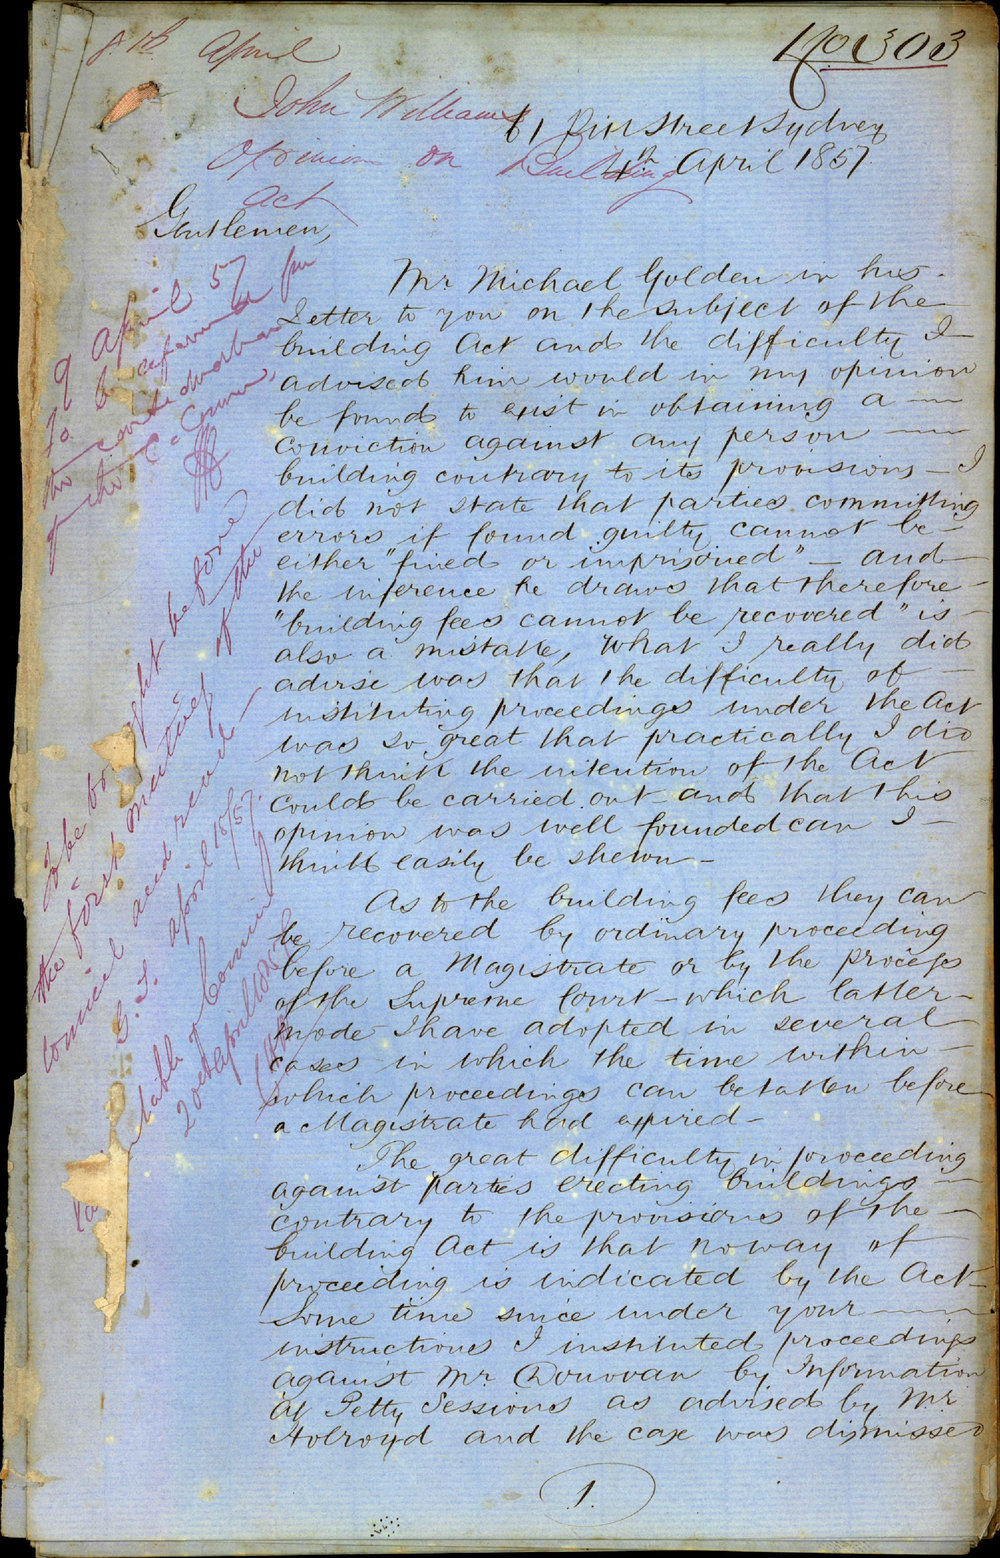 No 303
8th April
John Williams
Opinion on Building
Act
61 Pitt Street Sydney
4th April 1857.
Gentlemen,
Mr Michael Golden in his
Letter to you on the subject of the
building Act and the difficulty I
advised him would in my opinion
be found to exist in obtaining a
conviction against any person
building contrary to its provisions – I
did not state that parties committing
errors if found guilty cannot be
either "fined or imprisoned" – and
the inference he draws that therefore
"building fees cannot be recovered" is
also a mistake, What I really did
advise was that the difficulty of
instituting proceedings under the Act
was so great that practically I did
not think the intention of the Act
could be carried out – and that this
opinion was well founded can I
think easily be shewn –
As to the building fees they can
be recovered by ordinary proceeding
before a Magistrate or by the process
of the Supreme Court – which latter
mode I have adopted in several
cases in which the time within
which proceedings can be taken before
a Magistrate had expired –
The great difficulty in proceeding
against parties erecting buildings
contrary to the provisions of the
building Act is that no way of
proceeding is indicated by the Act
Some time since under your
instructions I instituted proceedings
against Mr Donovan by Information
at Petty Sessions as advised by Mr
Holroyd and the case was dismissed
1.
9 April 57
To be
the consideration
of the C. Council
To be brought before
the first meeting of the
Council and read –
April 1857.
Table of Council
20th April 1857